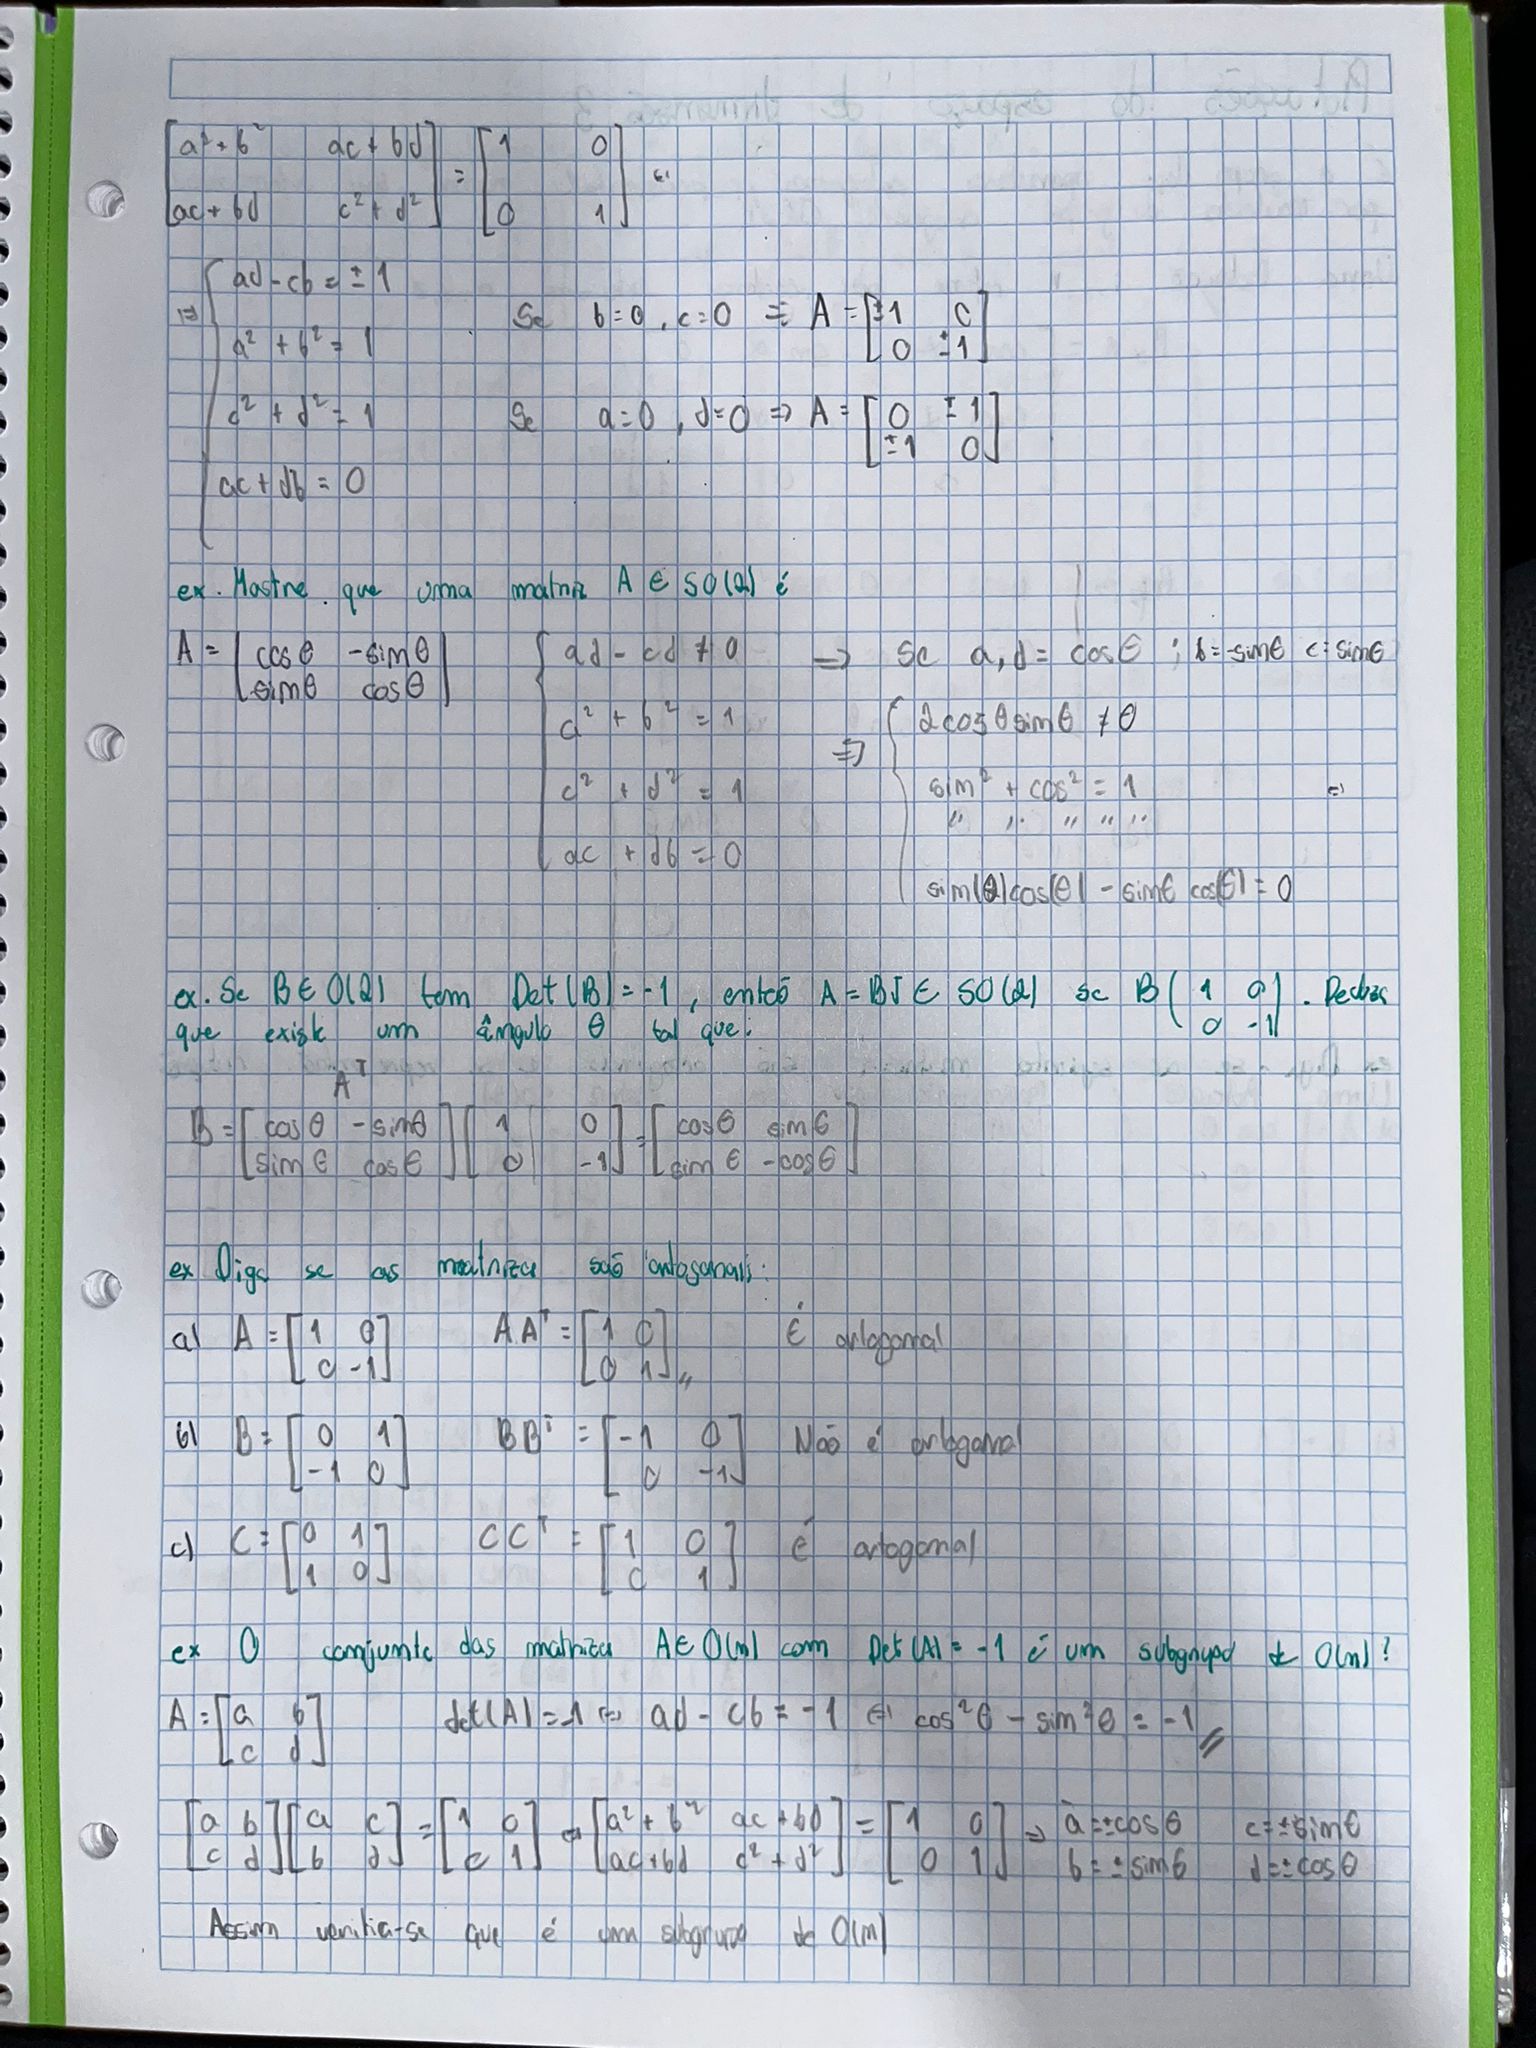 [a²+b² ac+bd; ac+bd c²+d²] = [1 0; 0 1] ⇔
⇒ { ad-cb = ±1
a² + b² = 1
c² + d² = 1
ac+db = 0
Se b=0, c=0 ⇒ A = [±1 0; 0 ±1]
Se a=0, d=0 ⇒ A = [0 ±1; ±1 0]
ex. Mostre que uma matriz A ∈ SO(2) é
A = [cosθ -sinθ; sinθ cosθ]
{ ad - cd ≠ 0
a² + b² = 1
c² + d² = 1
ac + db = 0
⇒ Se a,d = cosθ ; b=-sinθ c=sinθ
⇒ { 2cosθsinθ ≠ 0
sin² + cos² = 1 ⇒
" " " " "
sin(θ)cos(θ) - sinθ cos(θ) = 0
ex. Se B ∈ O(2) tem Det(B) = -1, então A = BJ ∈ SO(2) se B(1 0; 0 -1).
que existe um ângulo θ tal que:
A^T
B = [cosθ -sinθ; sinθ cosθ][1 0; 0 -1] = [cosθ sinθ; sinθ -cosθ]
ex Diga se as matrizes são ortogonais:
a) A = [1 0; 0 -1] A.A^T = [1 0; 0 1]„ É ortogonal
b) B = [0 1; -1 0] BB^T = [-1 0; 0 -1] Não é ortogonal
c) C = [0 1; 1 0] CC^T = [1 0; 0 1] é ortogonal
ex O conjunto das matrizes A∈O(n) com Det(A) = -1 é um subgrupo de O(n)?
A = [a b; c d] det(A) = -1 ⇔ ad - cb = -1 ⇔ cos²θ - sin²θ = -1 //
[a b; c d][a c; b d] = [1 0; 0 1] ⇔ [a²+b² ac+bd; ac+bd c²+d²] = [1 0; 0 1] ⇒ a=±cosθ c=±sinθ
b=±sinθ d=±cosθ
Assim verifia-se que é um subgrupo de O(n)